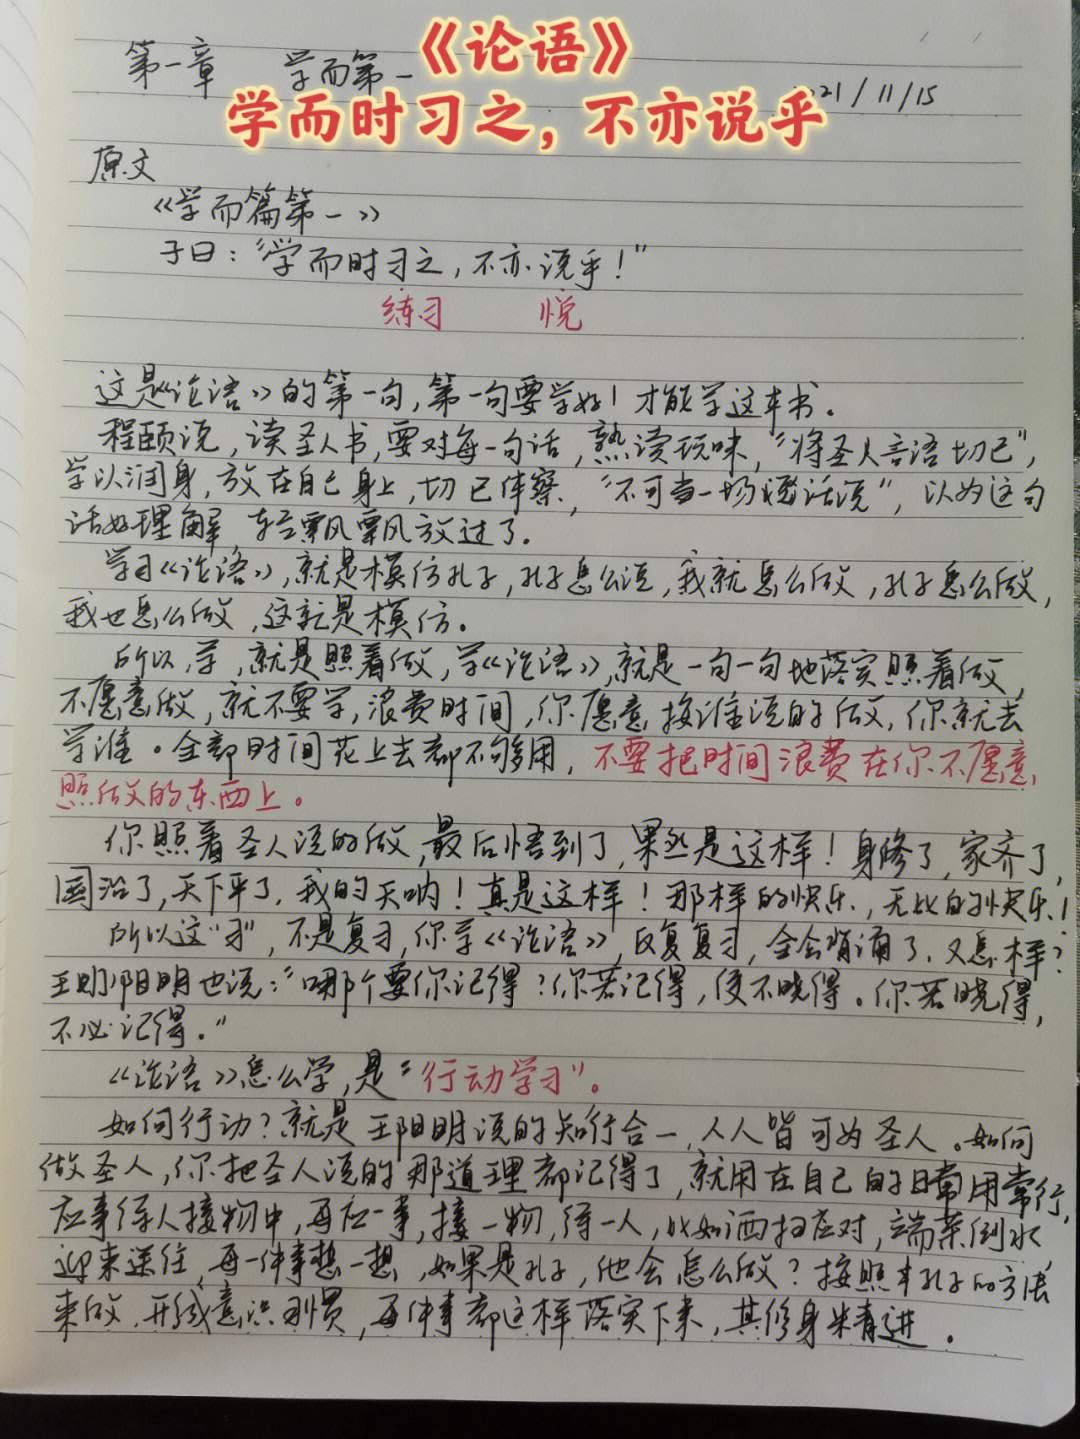 《论语》
学而时习之，不亦说乎
第一章 学而第一
21/11/15
原文
《学而篇第一》
子曰："学而时习之，不亦说乎！"
练习 悦
这是《论语》的第一句，第一句要学好！才能学这本书。
程颐说，读圣人书，要对每一句话，熟读玩味，"将圣人言语切己"，
学以润身，放在自己身上，切己体察，"不可当一场话说"，以为这句
话好理解，轻飘飘放过了。
学习《论语》，就是模仿孔子，孔子怎么说，我就怎么做，孔子怎么做，
我也怎么做，这就是模仿。
所以，学，就是照着做，学《论语》，就是一句一句地落实照着做，
不愿意做，就不要学，浪费时间，你愿意按谁说的做，你就去
学谁。全部时间花上去都不够用，不要把时间浪费在你不愿意
照做的东西上。
你照着圣人说的做，最后悟到了，果然是这样！身修了，家齐了，
国治了，天下平了，我的天呐！真是这样！那样的快乐，无比的快乐！
所以这"习"，不是复习，你学《论语》，反复复习，全会背诵了，又怎样？
王阳明也说："哪个要你记得？你若记得，便不晓得。你若晓得，
不必记得。"
《论语》怎么学，是"行动学习"。
如何行动？就是王阳明说的知行合一，人人皆可为圣人。如何
做圣人，你把圣人说的那道理都记得了，就用在自己的日常用常行，
应事待人接物中，每应一事，接一物，待一人，比如洒扫应对，端茶倒水
迎来送往，每一件事想一想，如果是孔子，他会怎么做？按照孔子的方法
来做，形成意识习惯，每件事都这样落实下来，其修身精进。